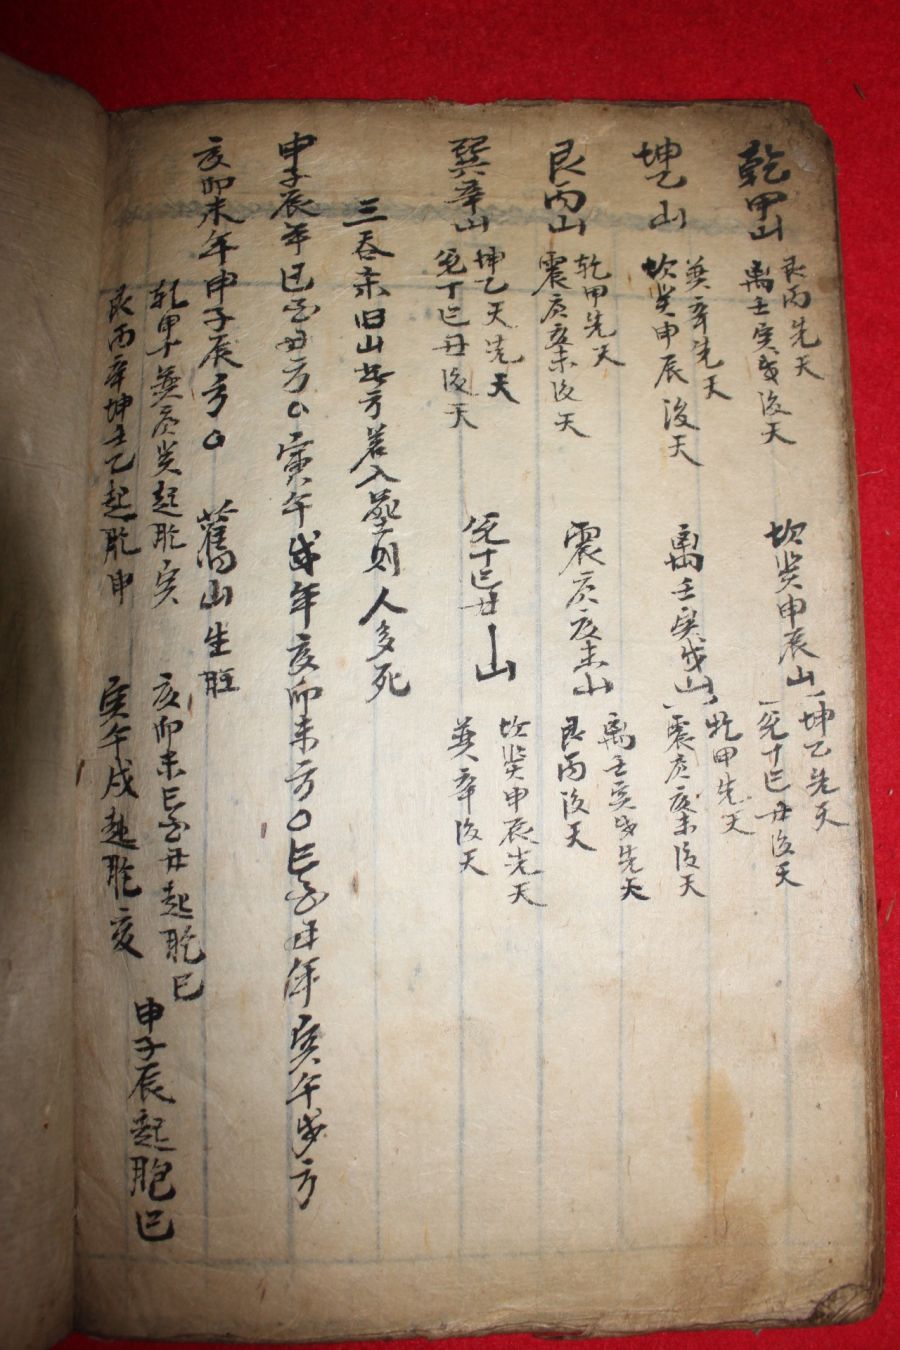 乾甲山 艮丙先天
离壬寅戌後天
坎癸申辰山 坤乙先天
兌丁巳丑後天
坤乙山 巽辛先天
坎癸申辰後天
离壬寅戌山 乾甲先天
震庚亥未後天
艮丙山 乾甲先天
震庚亥未後天
震庚亥未山 离壬寅戌先天
艮丙後天
巽辛山 坤乙天先天
兌丁巳丑後天
兌丁巳丑山 坎癸申辰先天
巽辛後天
三吞 旧山此方若入葬則人多死
申子辰年巳酉丑方○寅午戌年亥卯未方○巳酉丑年寅午戌方
亥卯未年申子辰方○ 舊山生旺
乾甲丁巽庚癸起胞寅 亥卯未巳酉丑起胞巳
艮丙辛坤壬乙起胞申 寅午戌起胞亥
申子辰起胞巳